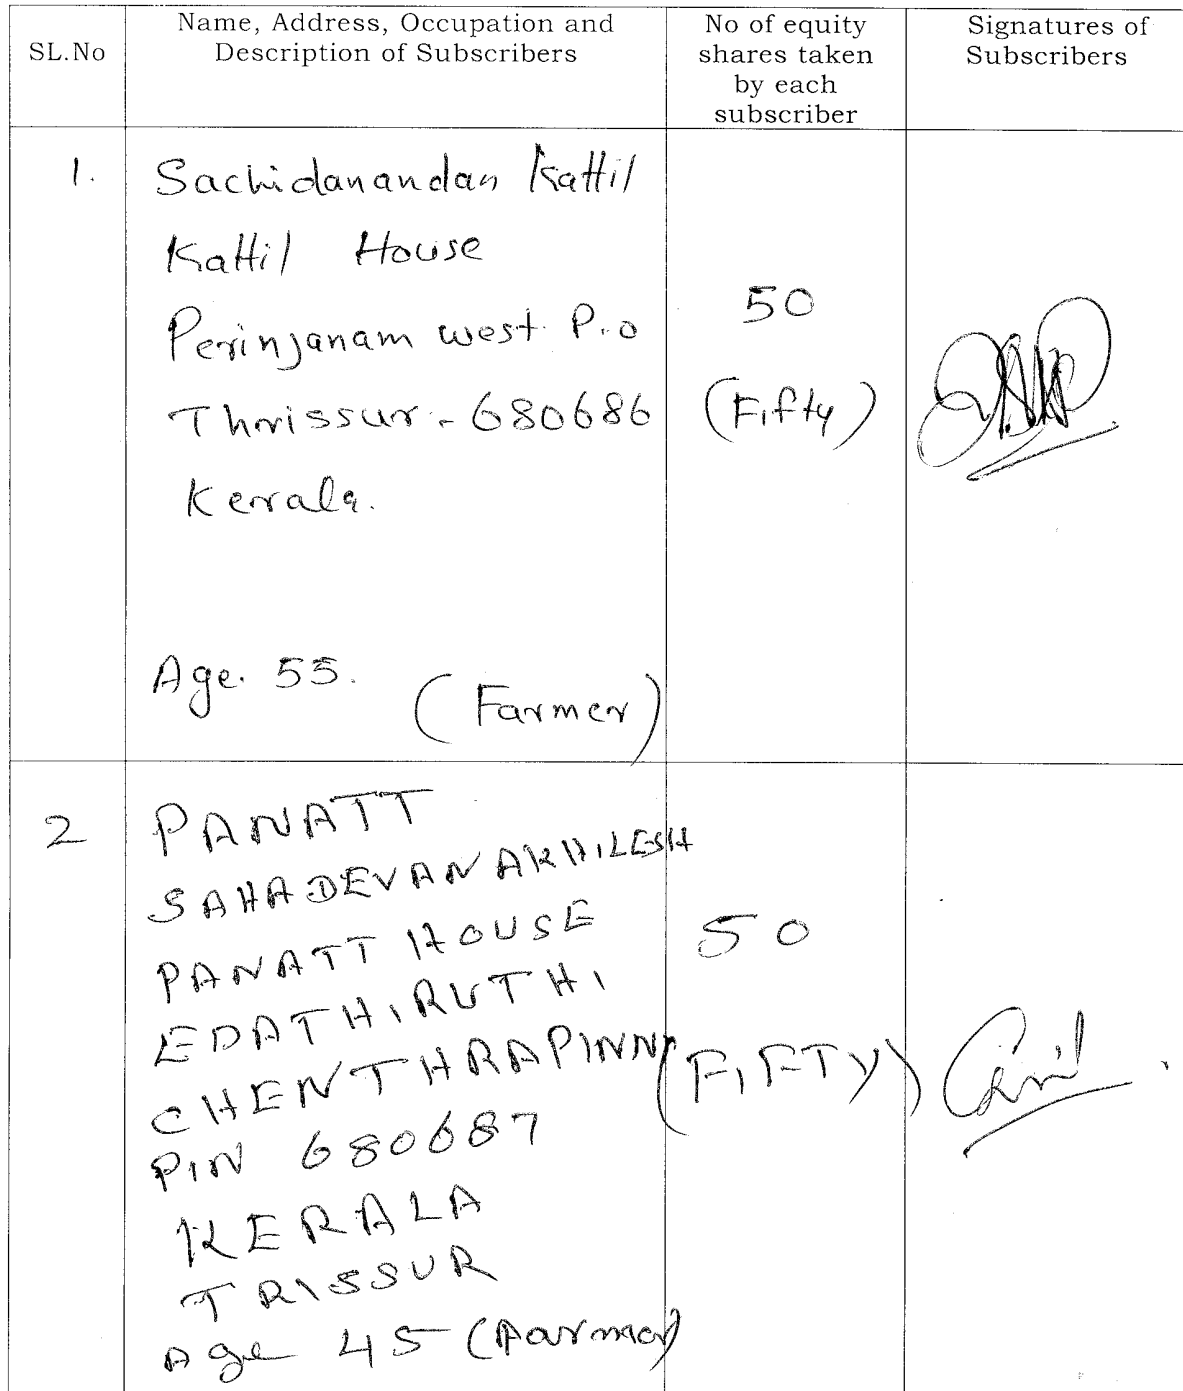 SL.No
Name, Address, Occupation and
Description of Subscribers
No of equity
shares taken
by each
subscriber
Signatures of
Subscribers
1.
Sachidanandan Kattil
Kattil House
Perinjanam west P.o
Thrissur - 680686
Kerala.
Age. 55.
(Farmer)
50
(Fifty)
2
PANATT
SAHADEVAN AKHILESH
PANATT HOUSE
EDATHIRUTHI
CHENTHRAPINNI
PIN 680687
KERALA
TRISSUR
Age 45 (Farmer)
50
(FIFTY)